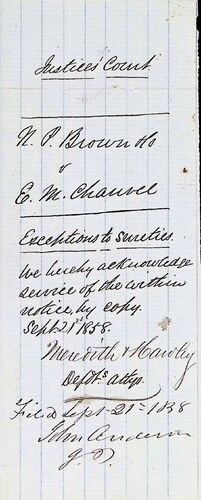 Justices' Court
N. P. Brown &
v
E. M. Chauvel
Exceptions to sureties.
We hereby acknowledge
service of the within
notice, by copy.
Sept 21st 1858.
Meredith & Hawley
Defdts attys.
Filed Sept 21st 1858
Anderson
J. P.